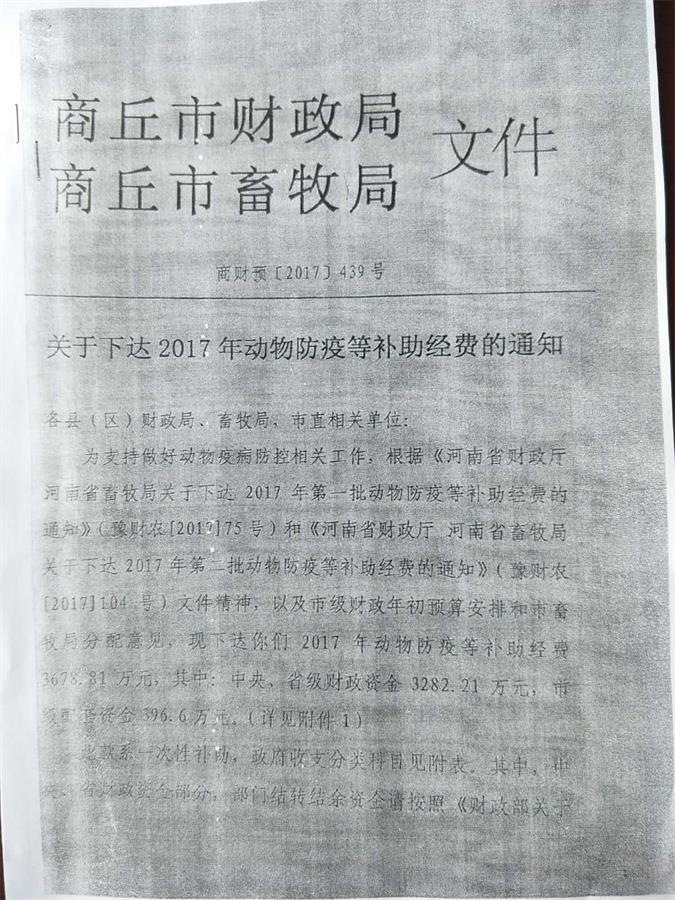 商丘市财政局
商丘市畜牧局
文件
商财预〔2017〕439号
关于下达2017年动物防疫等补助经费的通知
各县（区）财政局、畜牧局，市直相关单位：
为支持做好动物疫病防控相关工作，根据《河南省财政厅
河南省畜牧局关于下达 2017 年第一批动物防疫等补助经费的
通知》（豫财农[2017]75号）和《河南省财政厅 河南省畜牧局
关于下达 2017 年第二批动物防疫等补助经费的通知》（豫财农
[2017]104 号）文件精神，以及市级财政年初预算安排和市畜
牧局分配意见，现下达你们 2017 年动物防疫等补助经费
3678.81 万元，其中：中央、省级财政资金 3282.21 万元，市
级配套资金 396.6 万元。（详见附件 1）
此款系一次性补助，政府收支分类科目见附表。其中，中
央、省财政资金部分，部门结转结余资金请按照《财政部关于